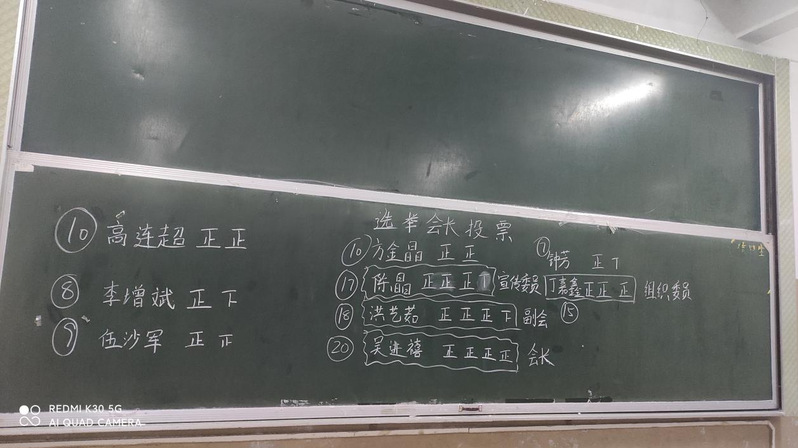 选举会长投票
⑩ 高连超 正正
⑧ 李增斌 正下
⑨ 伍沙军 正正
⑩ 方金晶 正正
⑦ 钟芳 正丅
⑰ 陈晶 正正正丅 宣传委员
丁嘉鑫 正正正 组织委员 ⑮
⑱ 洪艺茹 正正正下 副会
⑳ 吴进禧 正正正正 会长
REDMI K30 5G
AI QUAD CAMERA